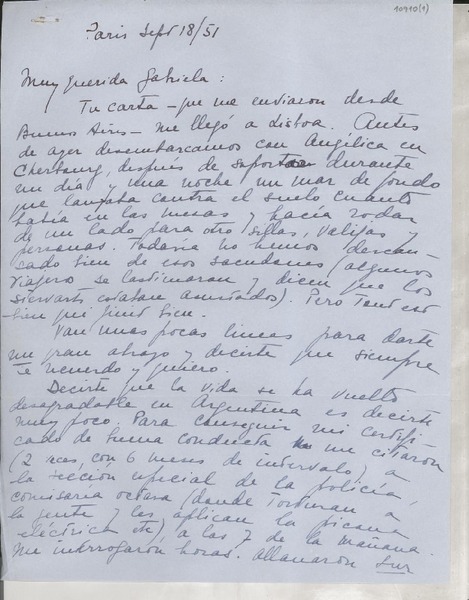 10910(1)
Paris Sept 18/51
Muy querida Gabriela:
Tu carta – que me enviaron desde
Buenos Aires – me llegó a Lisboa. Antes
de ayer desembarcamos con Angélica en
Cherburg, después de soportar durante
un día y una noche un mar de fondo
que lanzaba contra el suelo cuanto
había en las mesas y hacía rodar
de un lado para otro sillas, valijas y
personas. Todavía no hemos descan-
sado bien de esos sacudones (algunos
viajeros se lastimaron y dicen que los
stewarts estaban asustados). Pero todo eso
bien
Van unas pocas lineas para darte
un gran abrazo y decirte que siempre
te recuerdo y quiero.
Decirte que la vida se ha vuelto
desagradable en Argentina es decirte
muy poco. Para conseguir mi certifi-
cado de buena conducta me citaron
(2 veces con 6 meses de intervalo) a
la sección especial de la policía,
comisaria octava (donde torturan a
la gente y les aplican la picana
eléctrica etc) a las 7 de la mañana.
Me interrogaron horas. Allanaron Sur